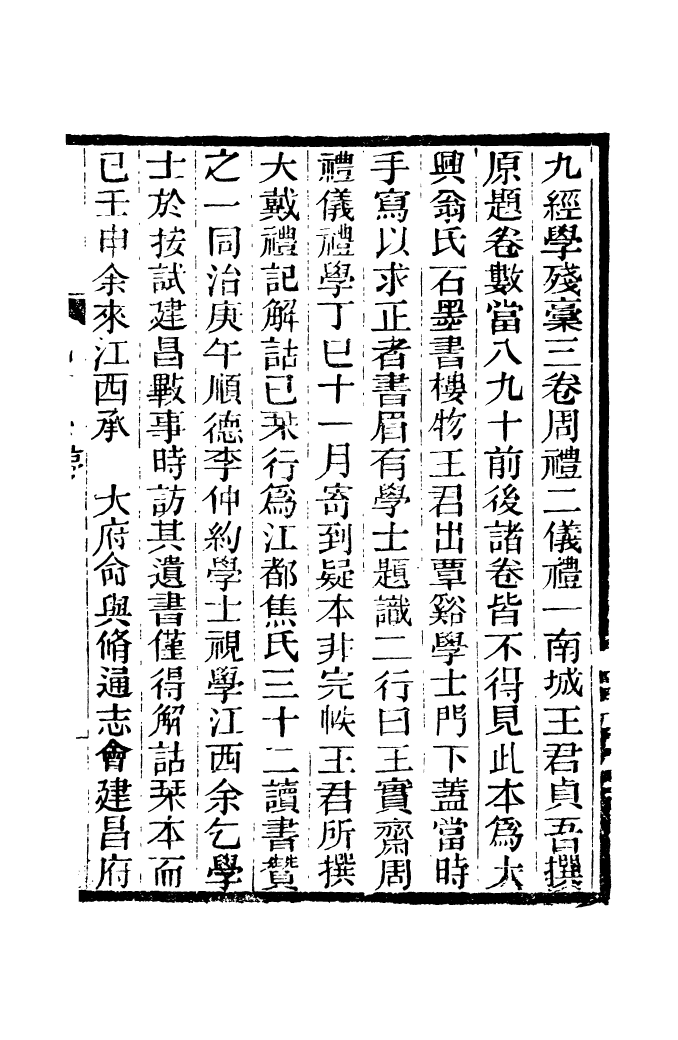 九經學殘稾三卷周禮二儀禮一南城王君貞吾撰
原題卷數當八九十前後諸卷皆不得見此本爲大
興翁氏石墨書樓物王君出覃谿學士門下蓋當時
手寫以求正者書眉有學士題識二行曰王實齋周
禮儀禮學丁巳十一月寄到疑本非完帙王君所撰
大戴禮記解詁已栞行爲江都焦氏三十二讀書贊
之一同治庚午順德李仲約學士視學江西余乞學
士於按試建昌斁事時訪其遺書僅得解詁栞本而
已壬申余來江西承　大府命與脩通志會建昌府